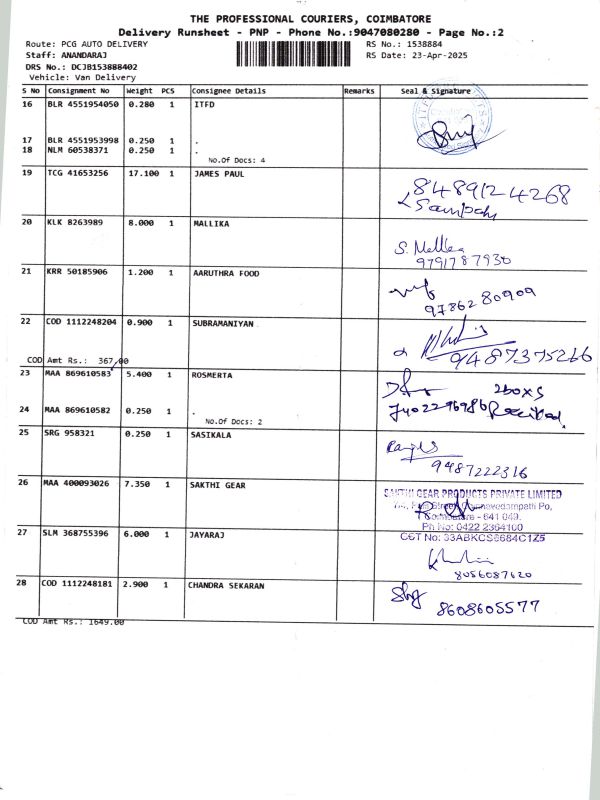 THE PROFESSIONAL COURIERS, COIMBATORE
Delivery Runsheet - PNP - Phone No.:9047080280 - Page No.:2
Route: PCG AUTO DELIVERY RS No.: 1538884
Staff: ANANDARAJ RS Date: 23-Apr-2025
DRS No.: DCJB153888402
Vehicle: Van Delivery
S No Consignment No Weight PCS Consignee Details Remarks Seal & Signature
16 BLR 4551954050 0.280 1 ITFD
17 BLR 4551953998 0.250 1 .
18 NLM 60538371 0.250 1 .
No.Of Docs: 4
19 TCG 41653256 17.100 1 JAMES PAUL
8489124268
Sampath
20 KLK 8263989 8.000 1 MALLIKA
S. Mallika
9791787930
21 KRR 50185906 1.200 1 AARUTHRA FOOD
9786280909
22 COD 1112248204 0.900 1 SUBRAMANIYAN
9487375266
COD Amt Rs.: 367.00
23 MAA 869610583 5.400 1 ROSMERTA
2boxs
24 MAA 869610582 0.250 1 .
Received.
No.Of Docs: 2
25 SRG 958321 0.250 1 SASIKALA
9487222316
26 MAA 400093026 7.350 1 SAKTHI GEAR
SAKTHI GEAR PRODUCTS PRIVATE LIMITED
Coimbatore - 641 049.
Ph No: 0422 2364100
27 SLM 368755396 6.000 1 JAYARAJ
8056087620
28 COD 1112248181 2.900 1 CHANDRA SEKARAN
8608605577
COD Amt Rs.: 1649.00